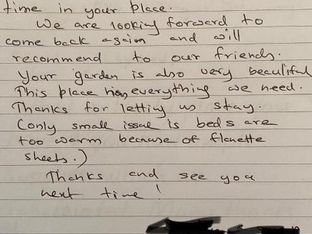 time in your place.
We are looking forward to
come back again and will
recommend to our friends.
Your garden is also very beautiful
This place has everything we need.
Thanks for letting us stay.
(only small issue is beds are
too warm because of flanette
sheets.)
Thanks and see you
next time!